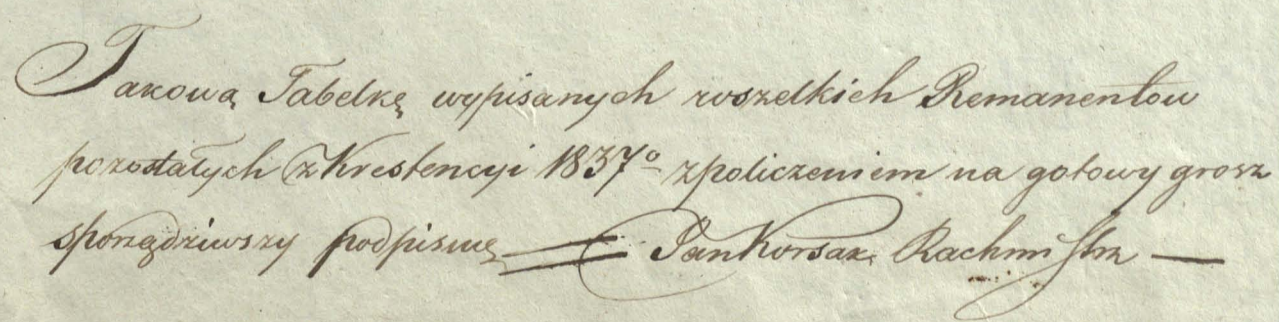 Takową Tabelkę wypisanych wszelkich Remanentow
pozostałych z Krestencyi 1837º zpoliczeniem na gotowy grosz
sporządziwszy podpisuię Jan Korsak Rachmistrz